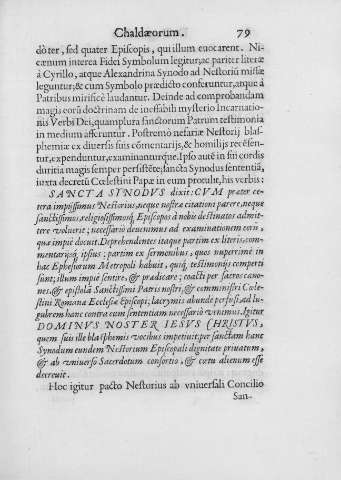 Chaldæorum. 79
dò ter, sed quater Episcopis, qui illum euocarent. Ni-
cænum interea Fidei Symbolum legitur; ac pariter literæ
à Cyrillo, atque Alexandrina Synodo ad Nestoriũ missæ
leguntur; & cum Symbolo prædicto conferuntur, atque à
Patribus mirificè laudantur. Deinde ad comprobandam
magis eorũ doctrinam de ineffabili mysterio Incarnatio-
nis Verbi Dei, quamplura sanctorum Patrum testimonia
in medium afferuntur. Postremò nefariæ Nestorij blas-
phemiæ ex diuersis suis cõmentarijs, & homilijs recẽsen-
tur, expenduntur, examinanturq́ue. Ipso autẽ in sui cordis
duritia magis semper persistẽte; sancta Synodus sententiã,
iuxta decretũ Cœlestini Papæ in eum protulit, his verbis:
SANCTA SYNODVS dixit: CVM præter ce-
tera impijssimus Nestorius, neque nostræ citationi parere, neque
sanctissimos, religiosissimosq́; Episcopos à nobis destinatos admit-
tere voluerit; necessariò deuenimus ad examinationem eorũ,
quæ impiè docuit. Deprehendentes itaque partim ex literis, com-
mentarijsq́; ipsius: partim ex sermonibus, quos nuperrimè in
hac Ephesiorum Metropoli habuit, quiq́; testimonijs comperti
sunt; illum impiè sentire, & prædicare; coacti per sacros cano-
nes, & epistolã Sanctissimi Patris nostri, & comministri Cœle-
stini Romanæ Ecclesiæ Episcopi; lacrymis abunde perfusi, ad lu-
gubrem hanc contra eum sententiam necessariò venimus. Igitur
DOMINVS NOSTER IESVS CHRISTVS,
quem suis ille blasphemis vocibus impetiuit, per sanctam hanc
Synodum eundem Nestorium Episcopali dignitate priuatum,
& ab vniuerso Sacerdotum consortio, & cœtu alienum esse
decreuit.
Hoc igitur pacto Nestorius ab vniuersali Concilio
San-